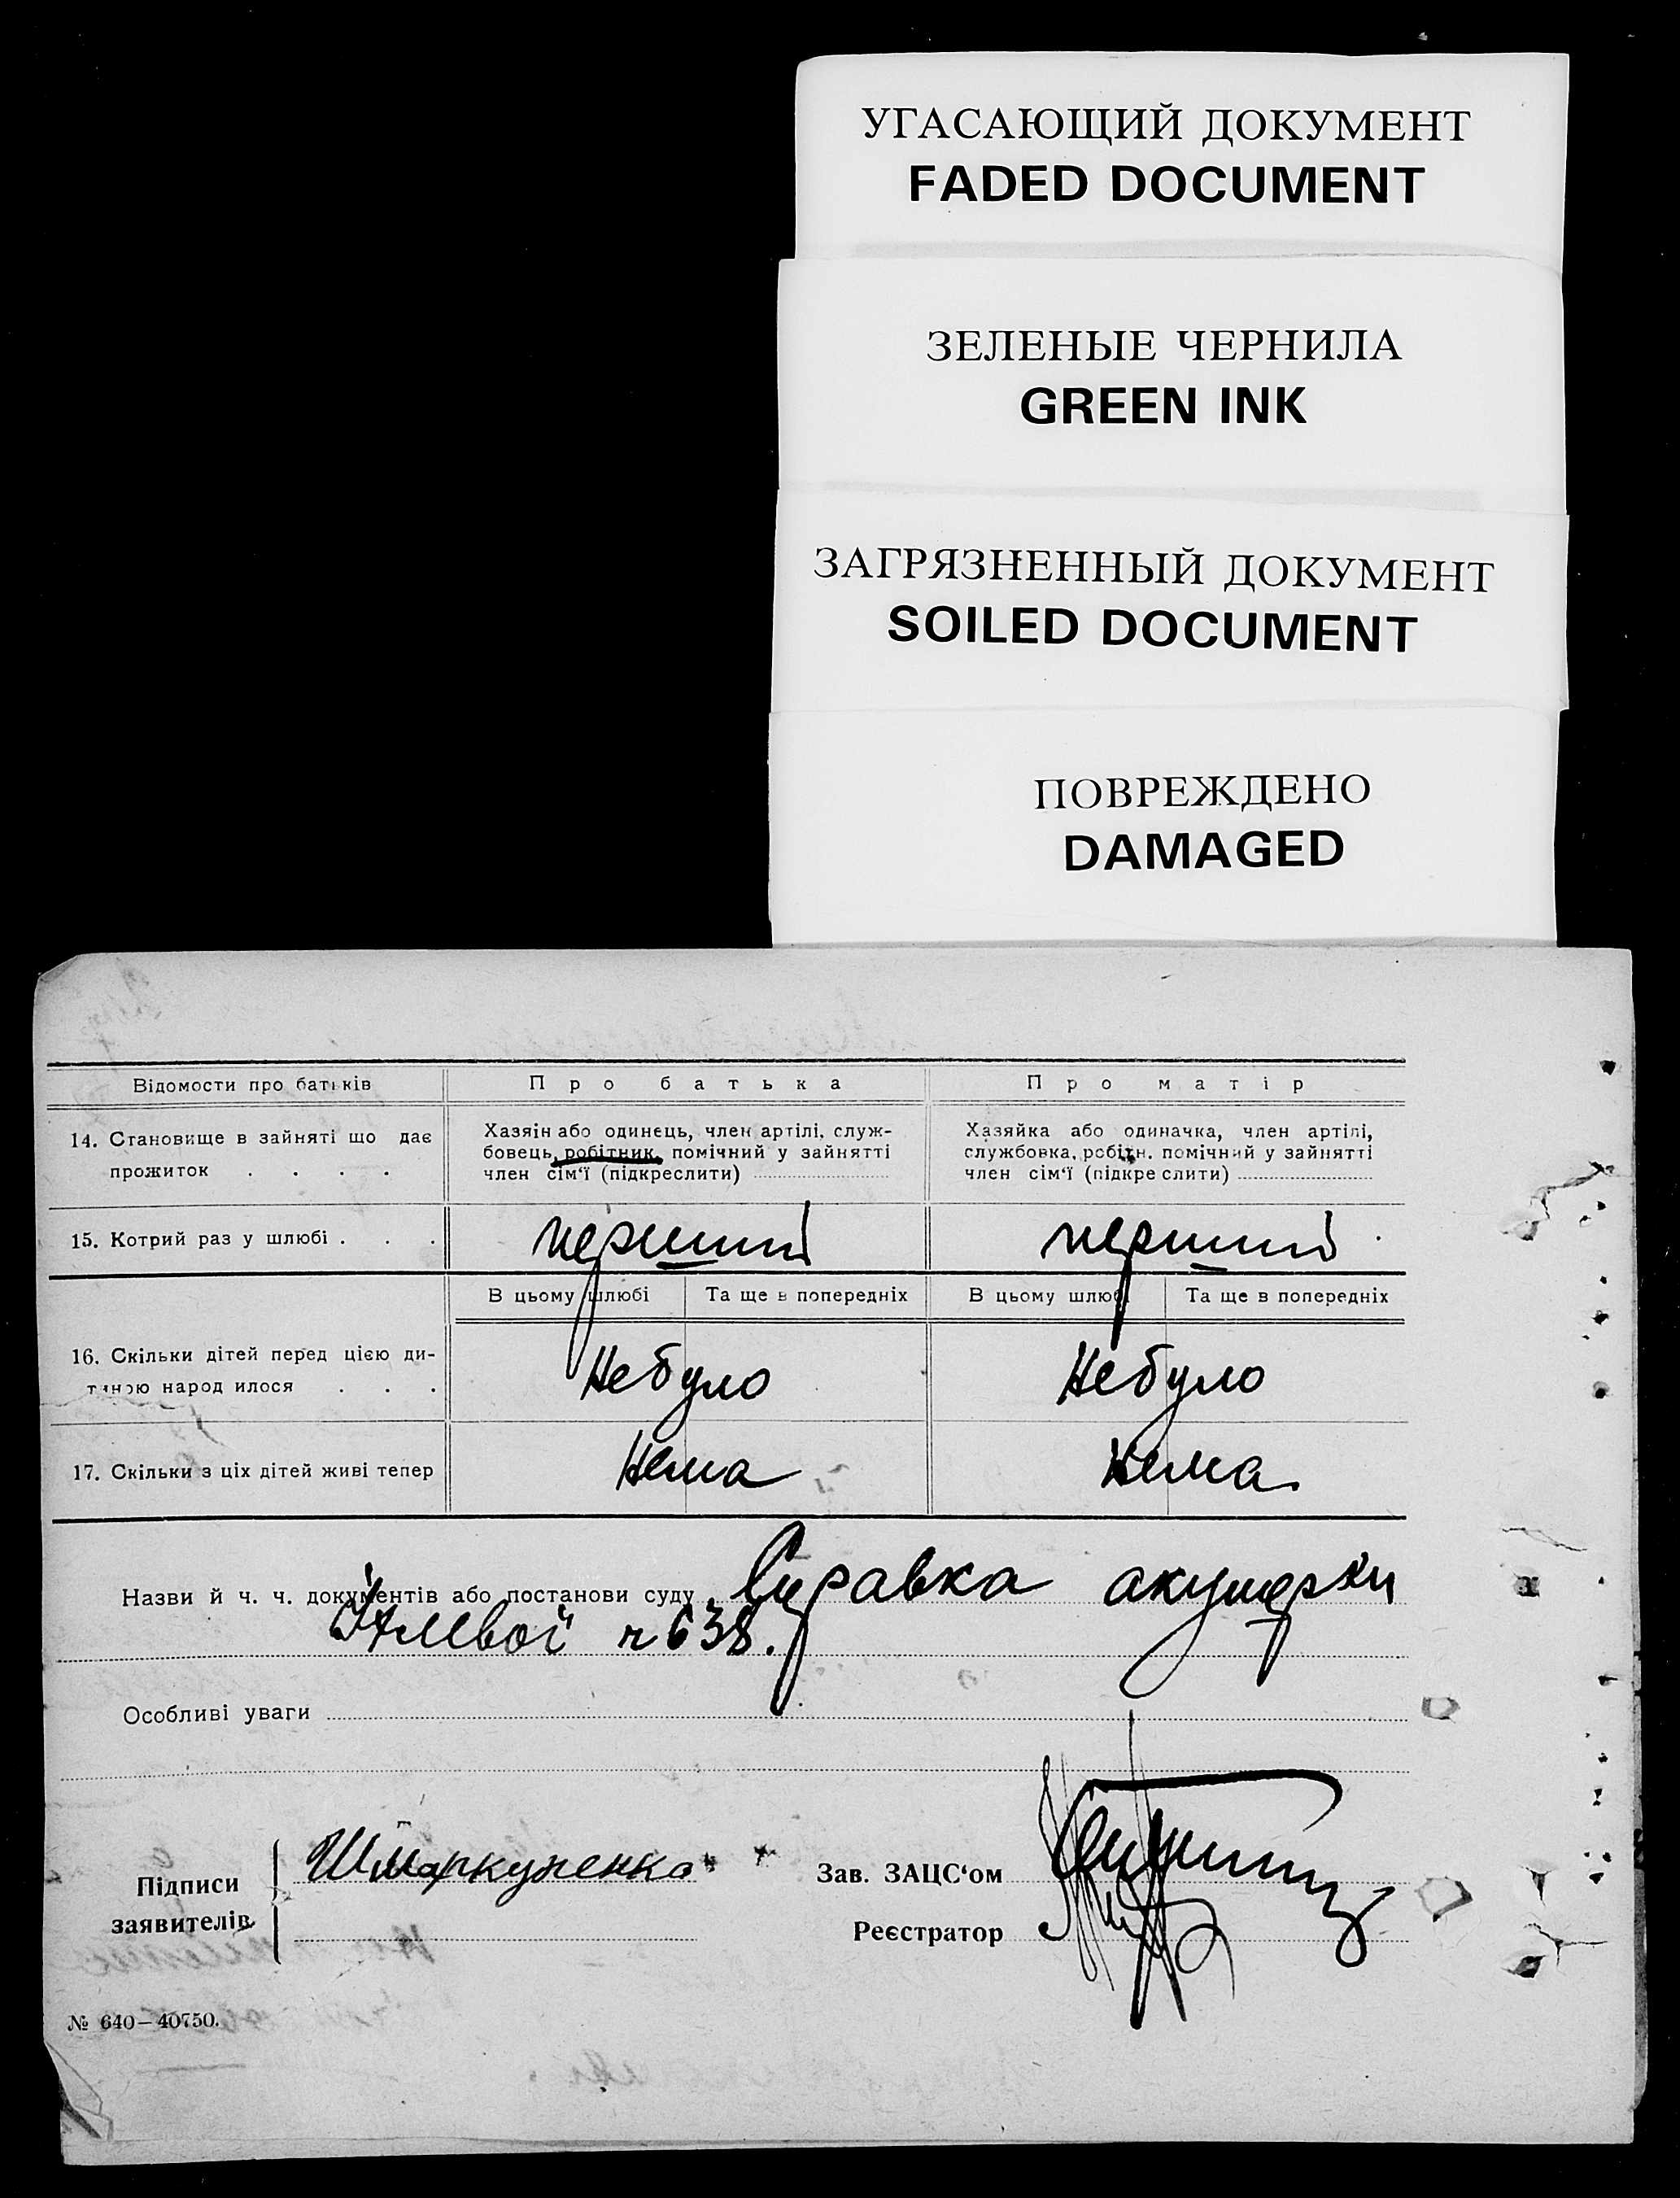 УГАСАЮЩИЙ ДОКУМЕНТ
FADED DOCUMENT
ЗЕЛЕНЫЕ ЧЕРНИЛА
GREEN INK
ЗАГРЯЗНЕННЫЙ ДОКУМЕНТ
SOILED DOCUMENT
ПОВРЕЖДЕНО
DAMAGED
Відомости про батьків
Про батька
Про матір
14. Становище в зайняті що дає
прожиток . . . .
Хазяін або одинець, член артілі, служ-
бовець, робітник, помічний у зайнятті
член сім‘ї (підкреслити)
Хазяйка або одиначка, член артілі,
службовка, робітн. помічний у зайнятті
член сім‘ї (підкреслити)
15. Котрий раз у шлюбі . . .
перший
перший
В цьому шлюбі
Та ще в попередніх
В цьому шлюбі
Та ще в попередніх
16. Скільки дітей перед цією ди-
тиною народилося . . .
Небуло
Небуло
17. Скільки з ціх дітей живі тепер
Нема
Нема
Назви й ч. ч. документів або постанови суду Справка акушерки
ч 638.
Особливі уваги
Підписи
заявителів
Зав. ЗАЦС‘ом
Реєстратор
№ 640—40750.